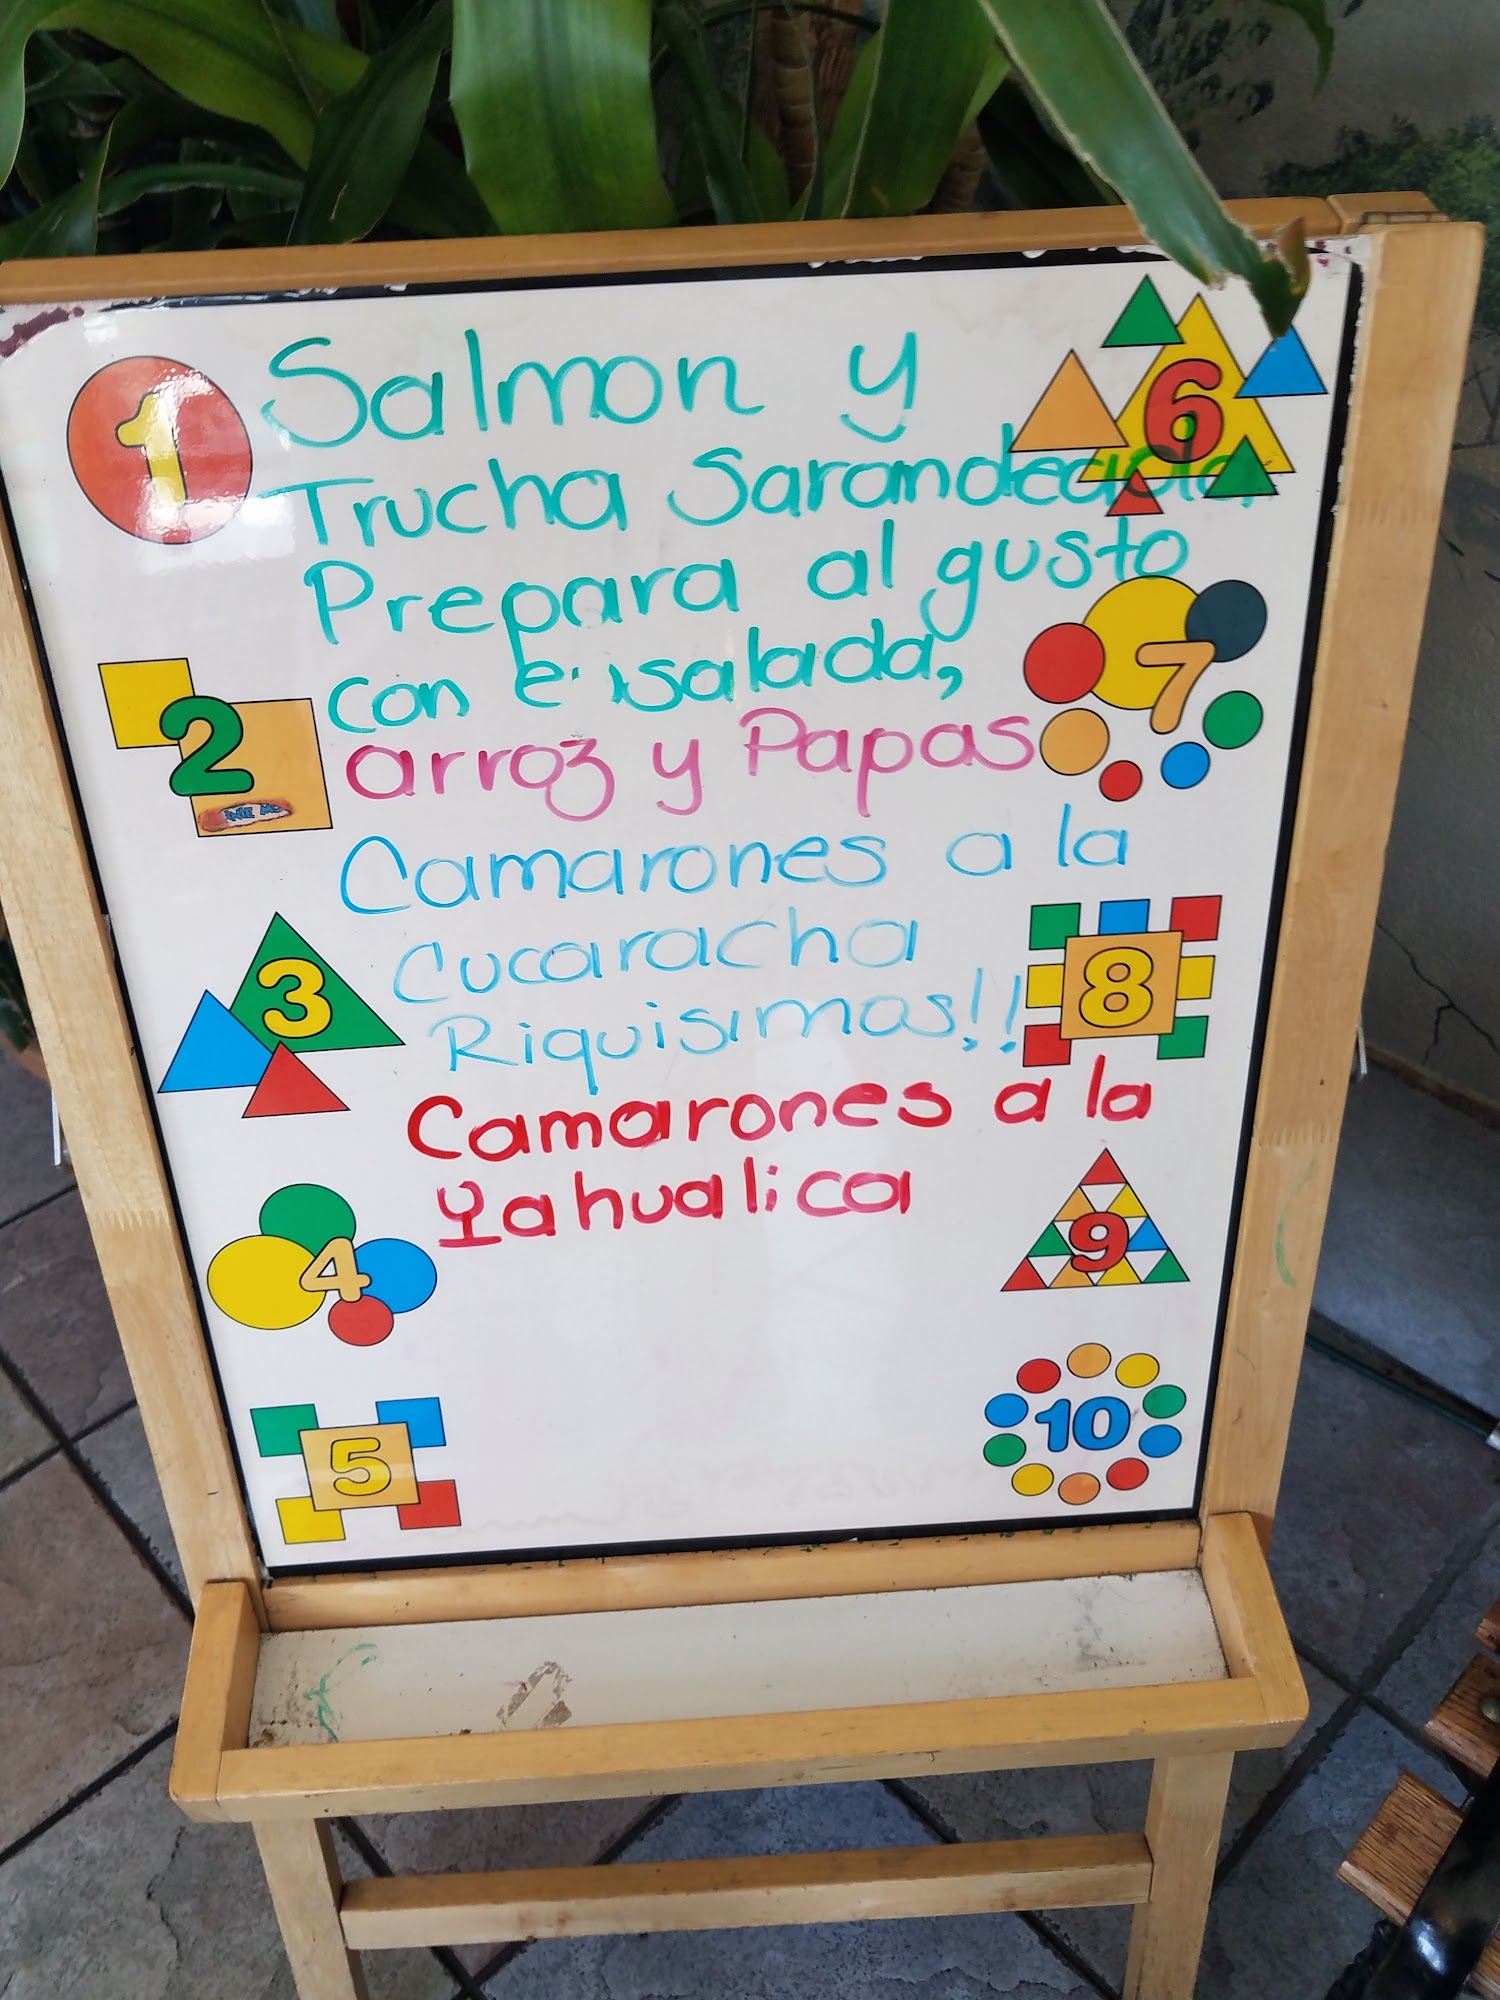 1
Salmon y
Trucha Sarandeada
Prepara al gusto
con ensalada,
arroz y Papas
Camarones a la
Cucaracha
Riquisimos!!
Camarones a la
Yahualica
2
3
4
5
6
7
8
9
10